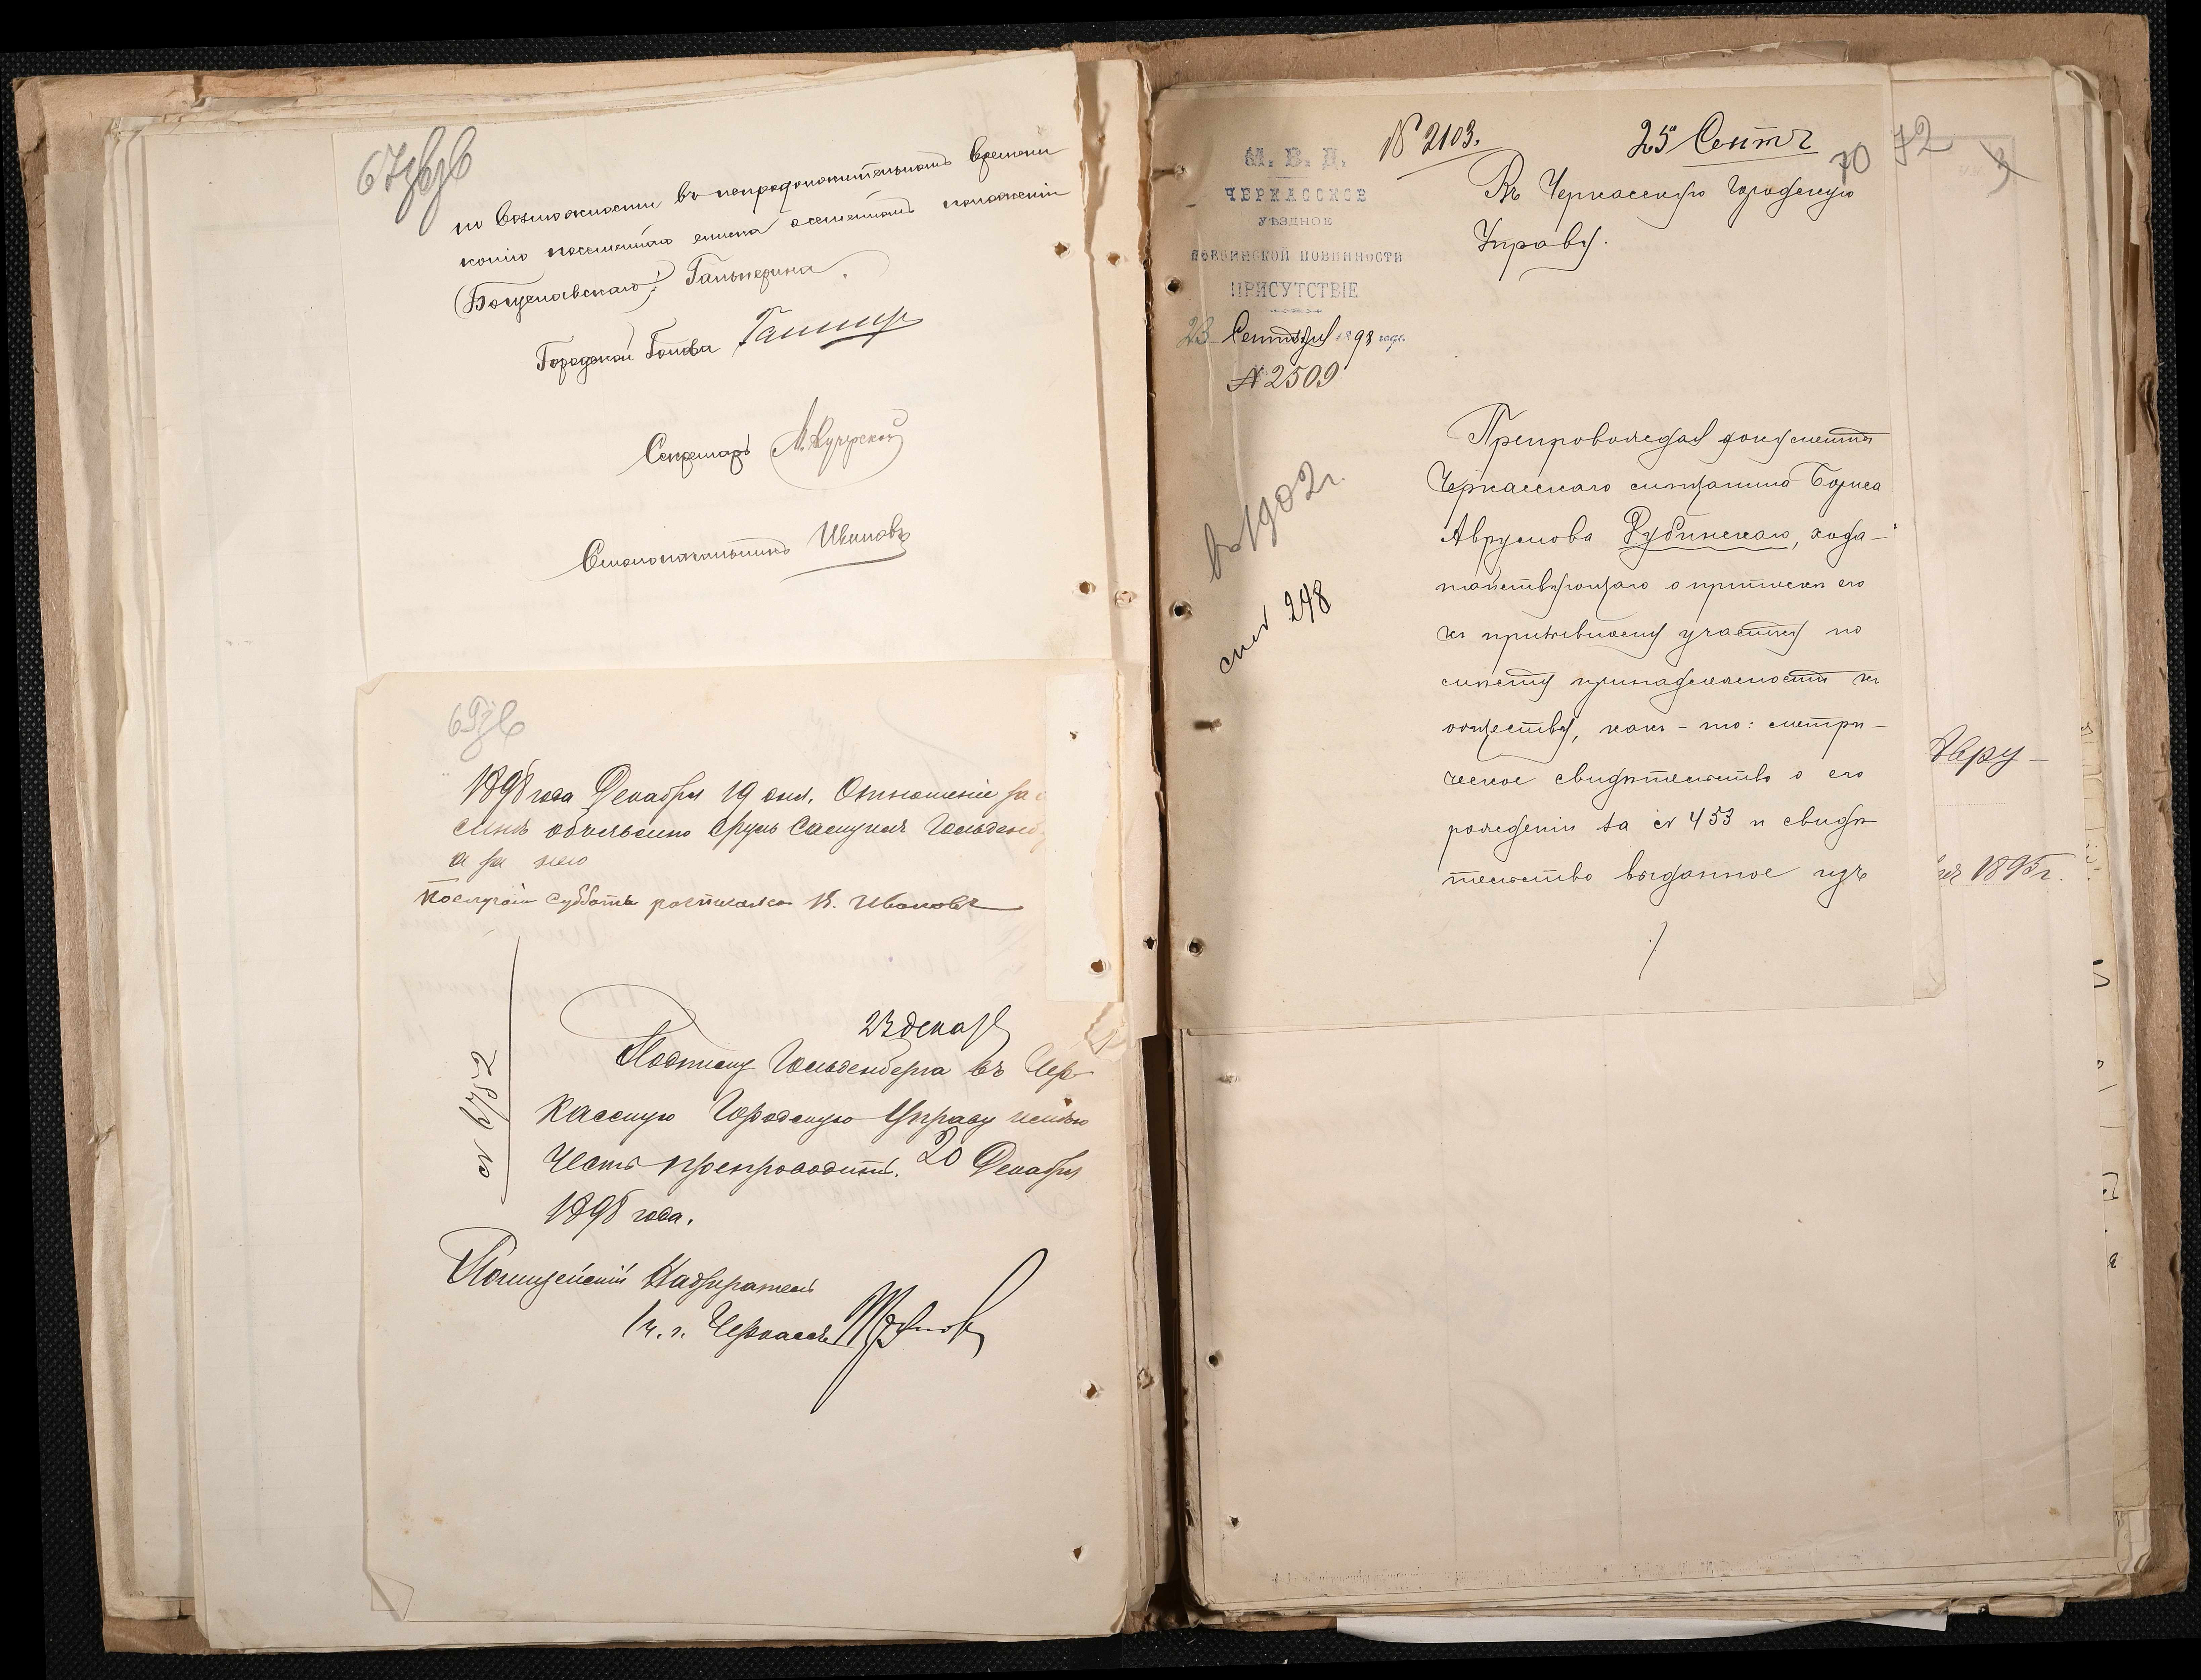 67зв
по возможности въ непродолжительномъ времени
копію посемейнаго списка о семейномъ положеніи
(Богуславскаго) Гальперина.
Городской Голова
Секретарь
Столоначальникъ Ивановъ
69зв
1898 года Декабря 19 дня. Отношеніе за
симъ объявлено Сруль Самуиль Гольденбе
а за него
по случаю субботы росписался К. Ивановъ
23 декаб
Подписку Гольденберга въ Чер-
касскую Городскую Управу имѣю
честь препроводить. 20 Декабря
1898 года.
№ 6752
Полицейскій Надзиратель
1 ч. г. Черкассъ
М. В. Д.
ЧЕРКАССКОЕ
УѢЗДНОЕ
ПО ВОИНСКОЙ ПОВИННОСТИ
ПРИСУТСТВІЕ
23 Сентября 1893 года
№ 2509
№ 2103.
25 Сент
70
72
3
Въ Черкасскую Городскую
Управу.
въ 1902 г.
248
Препровождая документы
Черкасскаго мѣщанина Бориса
Аврумова Рубинскаго, хода-
тайствующаго о припискѣ его
къ призывному участку по
мѣсту принадлежности къ
обществу, какъ-то: метри-
ческое свидѣтельство о его
рожденіи за № 453 и свидѣ
тельство выданное изъ
./
Авру-
1895 г.